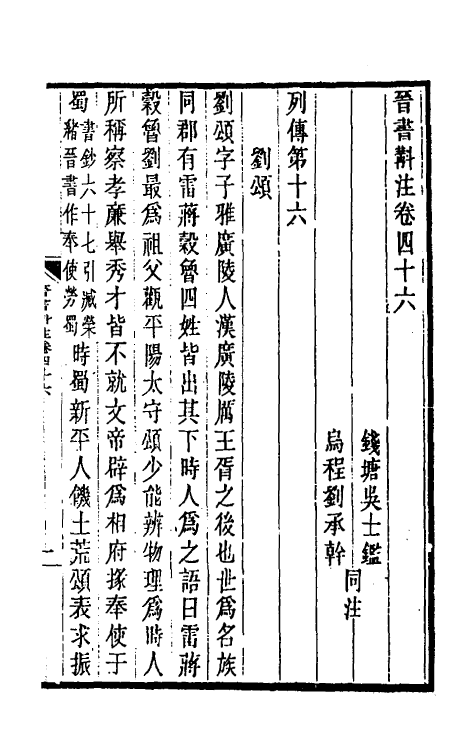 晉書斠注卷四十六
錢塘吳士鑑
烏程劉承幹
同注
列傳第十六
劉頌
劉頌字子雅廣陵人漢廣陵厲王胥之後也世爲名族
同郡有雷蔣穀魯四姓皆出其下時人爲之語曰雷蔣
穀魯劉最爲祖父觀平陽太守頌少能辨物理爲時人
所稱察孝廉舉秀才皆不就文帝辟爲相府掾奉使于
蜀書鈔六十七引臧榮緒晉書作奉使勞蜀時蜀新平人饑土荒頌表求振
晉書斠注卷四十六
一